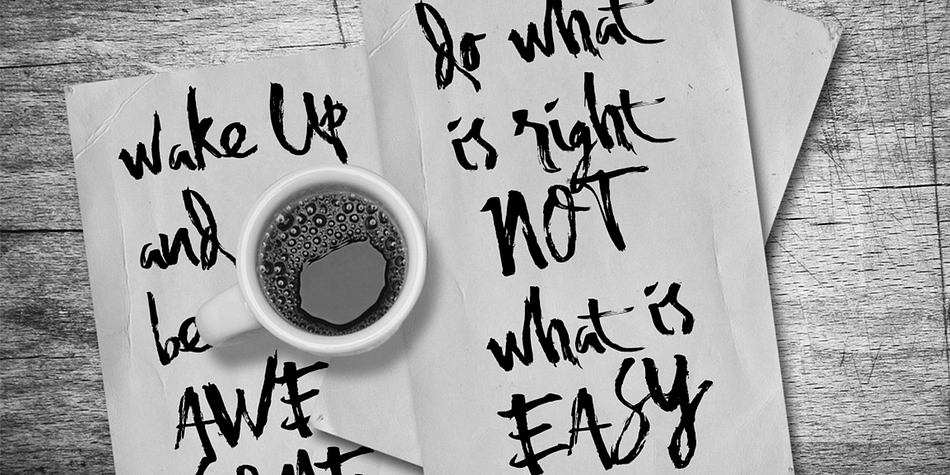 wake Up
and
be
AWE
SOME
do what
is right
NOT
what is
EASY